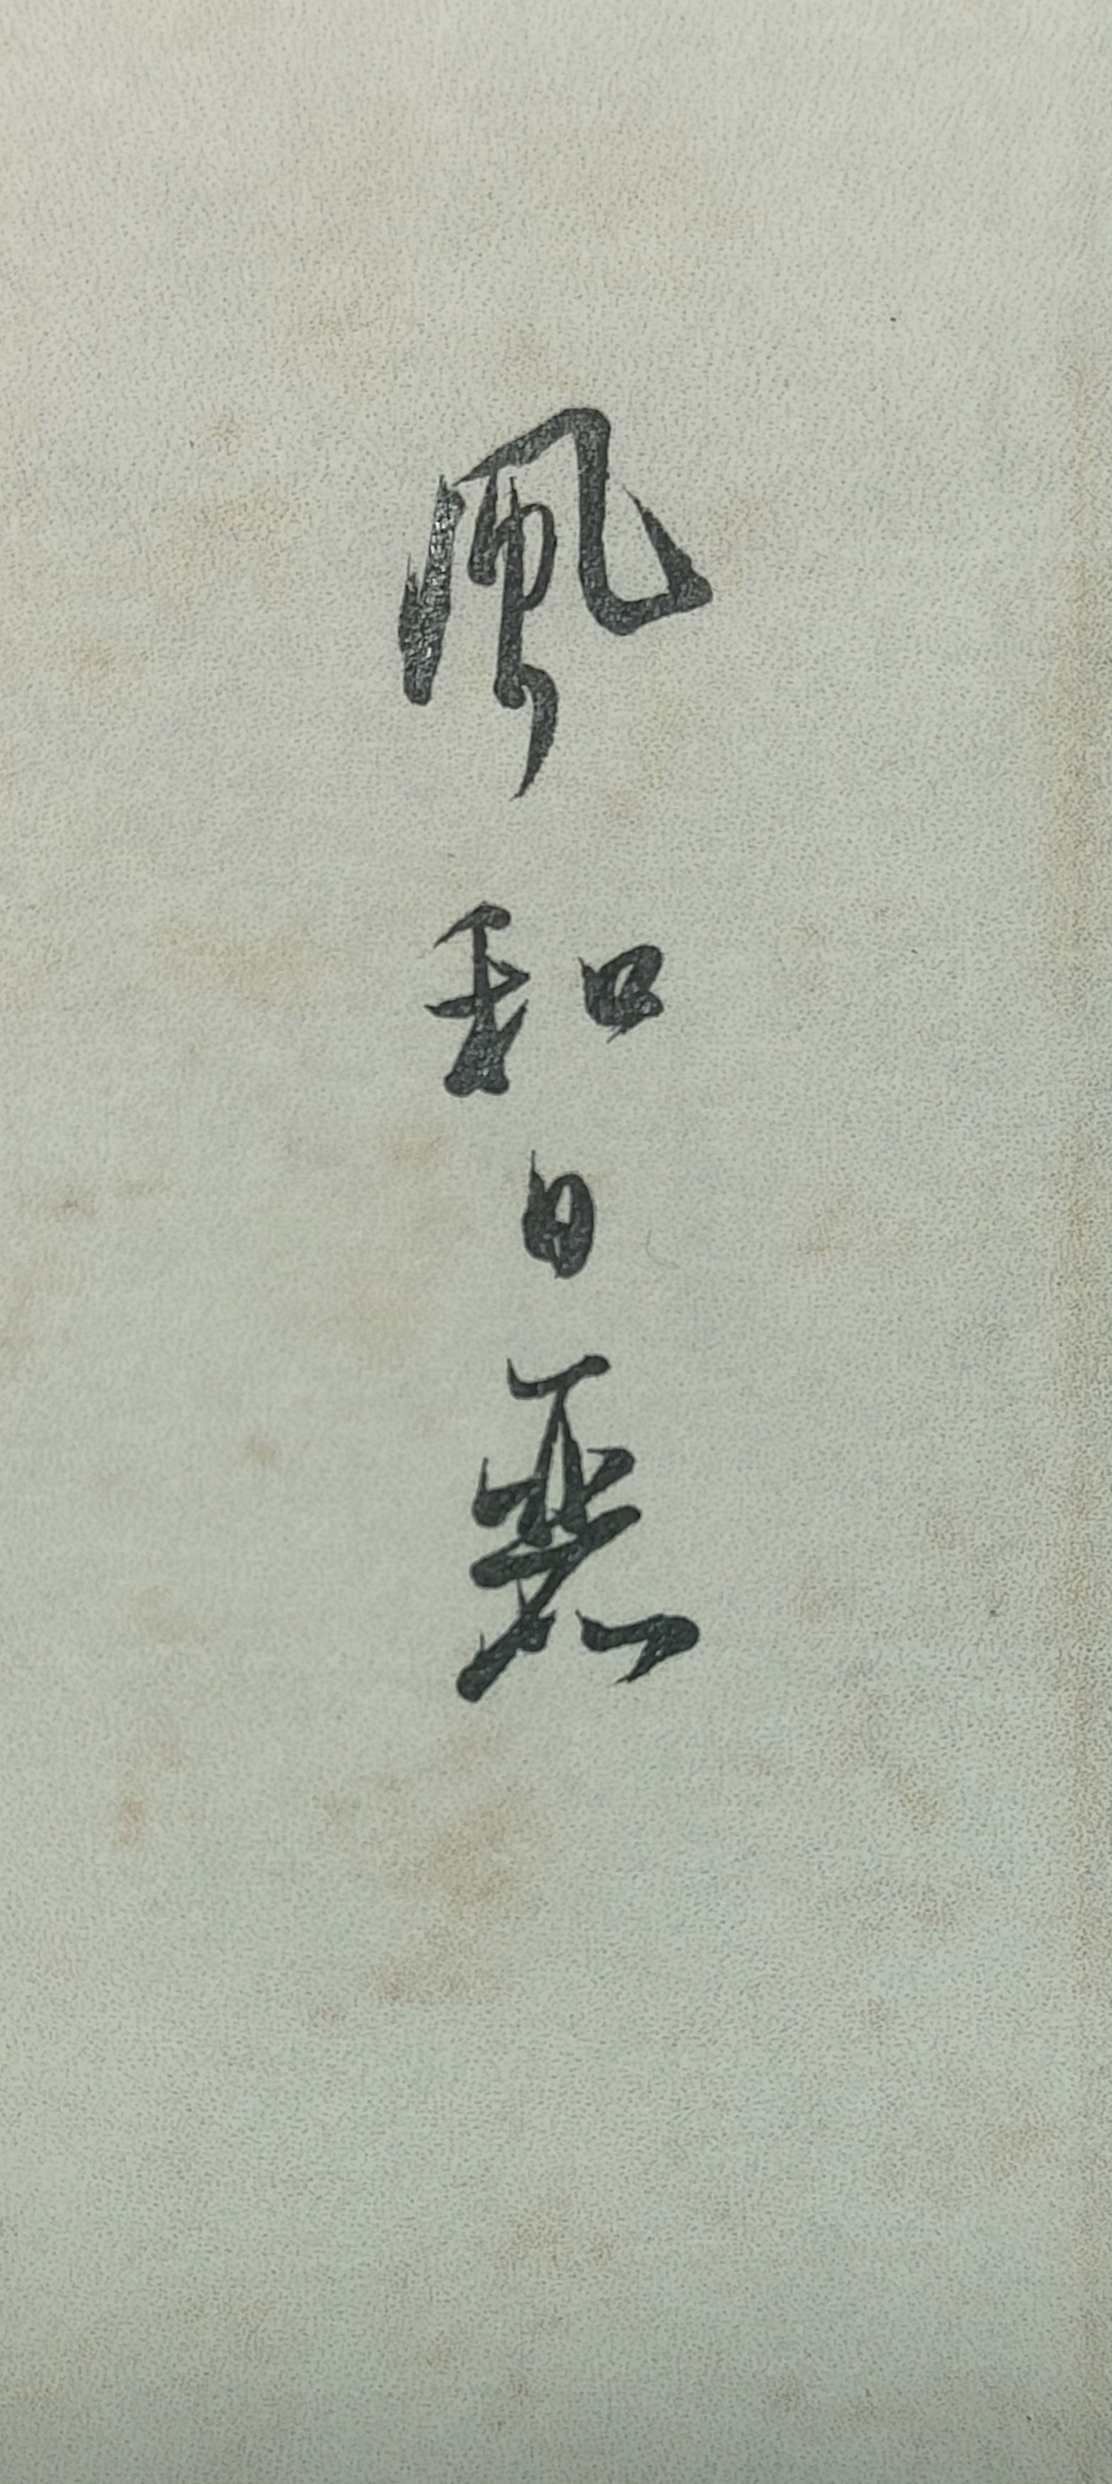 風和日麗